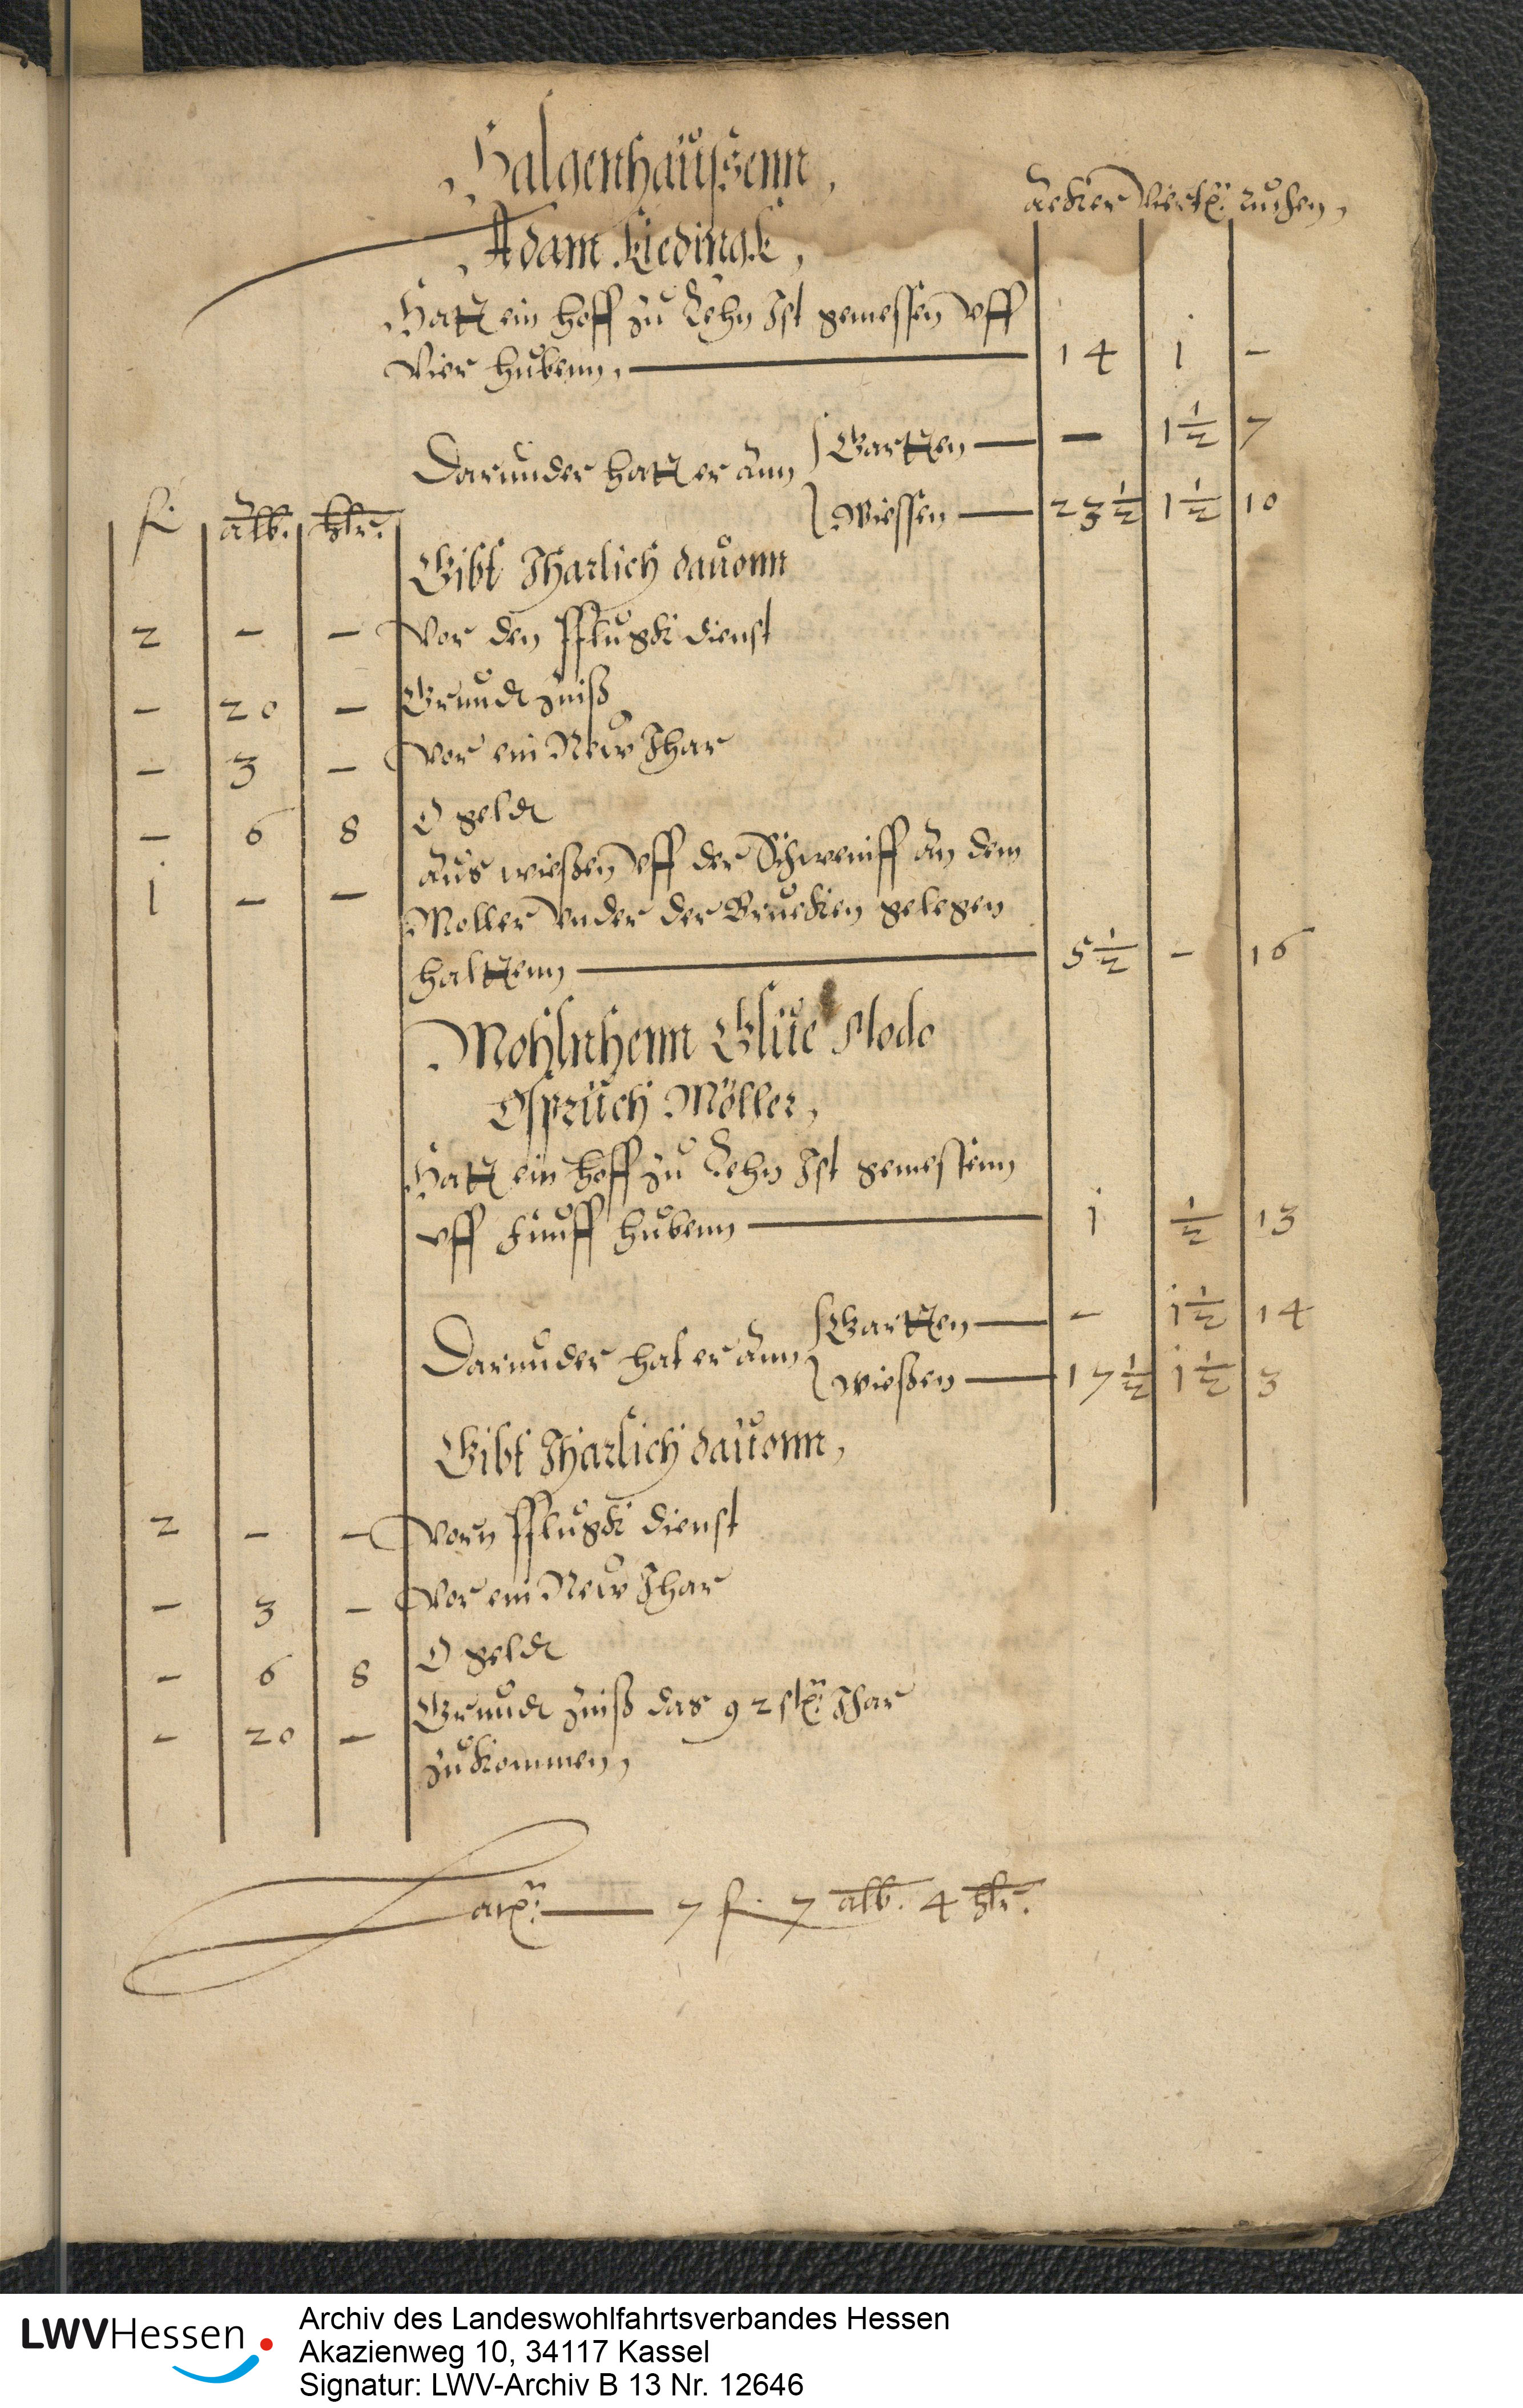 Halgenhaußenn,
äcker viertt: ruthen,
Adam Liedingk,
Hatt ein hoff zu Lehn Ist gemessen vff
Vier hubenn, 14 1 –
Darunder hatt er ann Gartten – 1½ 7
Wiessen 23½ 1½ 10
fl. alb. hlr.
Gibt Jharlich dauonn
2 – – Vor den Pflugk dienst
– 20 – Grundt zinß
– 3 – Vor ein New Jhar
– 6 8 O geldt
1 – – Aus wießen vff der Schweniff an dem
Moller vnder der Brucken gelegen
haltten 5½ – 16
Mohlnhenn
Möller,
Hatt ein hoff zu Lehn Ist gemessenn
vff Funff hubenn 1 ½ 13
Darunder hat er ann Gartten – 1½ 14
Wießen 17½ 1½ 3
Gibt Jharlich dauonn,
2 – – Vorn Pflugk dienst
– 3 – Vor ein New Jhar
– 6 8 O geldt
– 20 – Grundt zinß das 92st: Jhar
zukommen,
Lat: 7 fl. 7 alb. 4 hlr.
LWVHessen
Archiv des Landeswohlfahrtsverbandes Hessen
Akazienweg 10, 34117 Kassel
Signatur: LWV-Archiv B 13 Nr. 12646